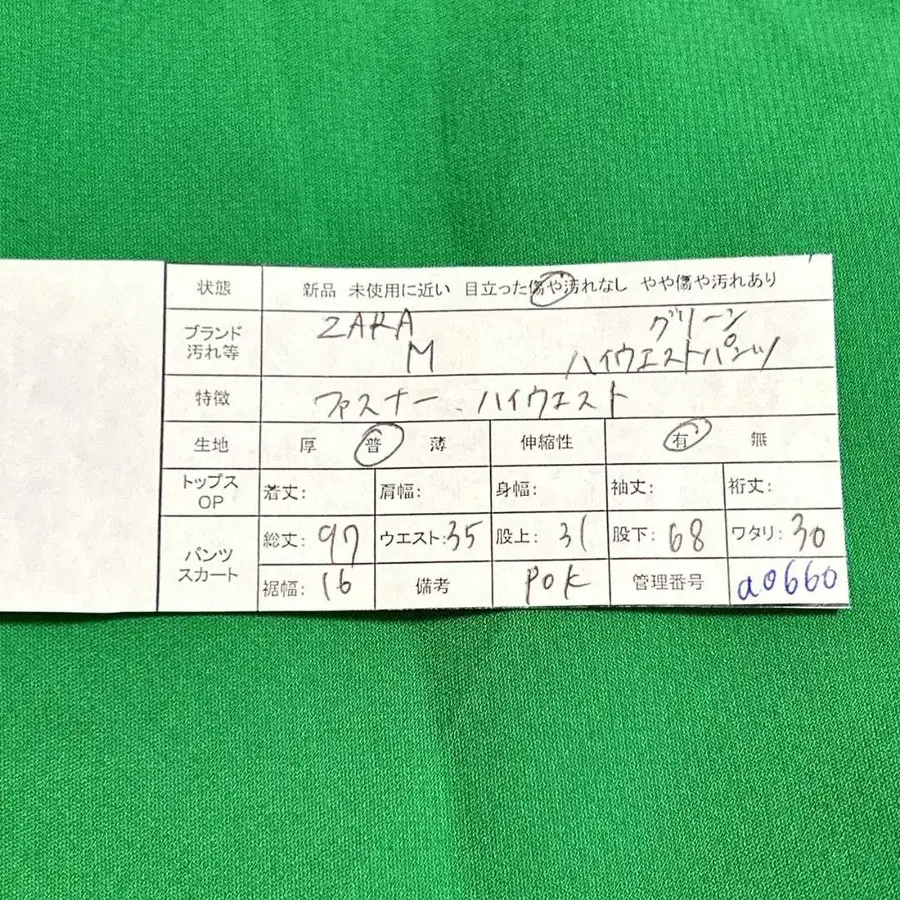 状態 新品 未使用に近い 目立った傷や汚れなし やや傷や汚れあり
ブランド ZARA グリーン
汚れ等 M ハイウエストパンツ
特徴 ファスナー、ハイウエスト
生地 厚 普 薄 伸縮性 有 無
トップス
OP 着丈: 肩幅: 身幅: 袖丈: 裄丈:
パンツ
スカート
総丈: 97 ウエスト: 35 股上: 31 股下: 68 ワタリ: 30
裾幅: 16 備考 POK 管理番号 a0660